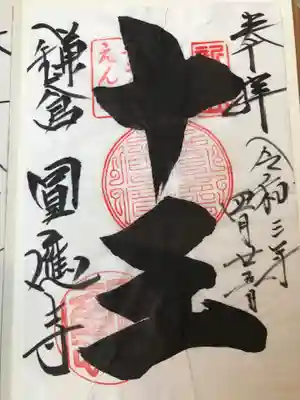 奉拝
令和三年
四月廿五日
十王
鎌倉
圓應寺
えん